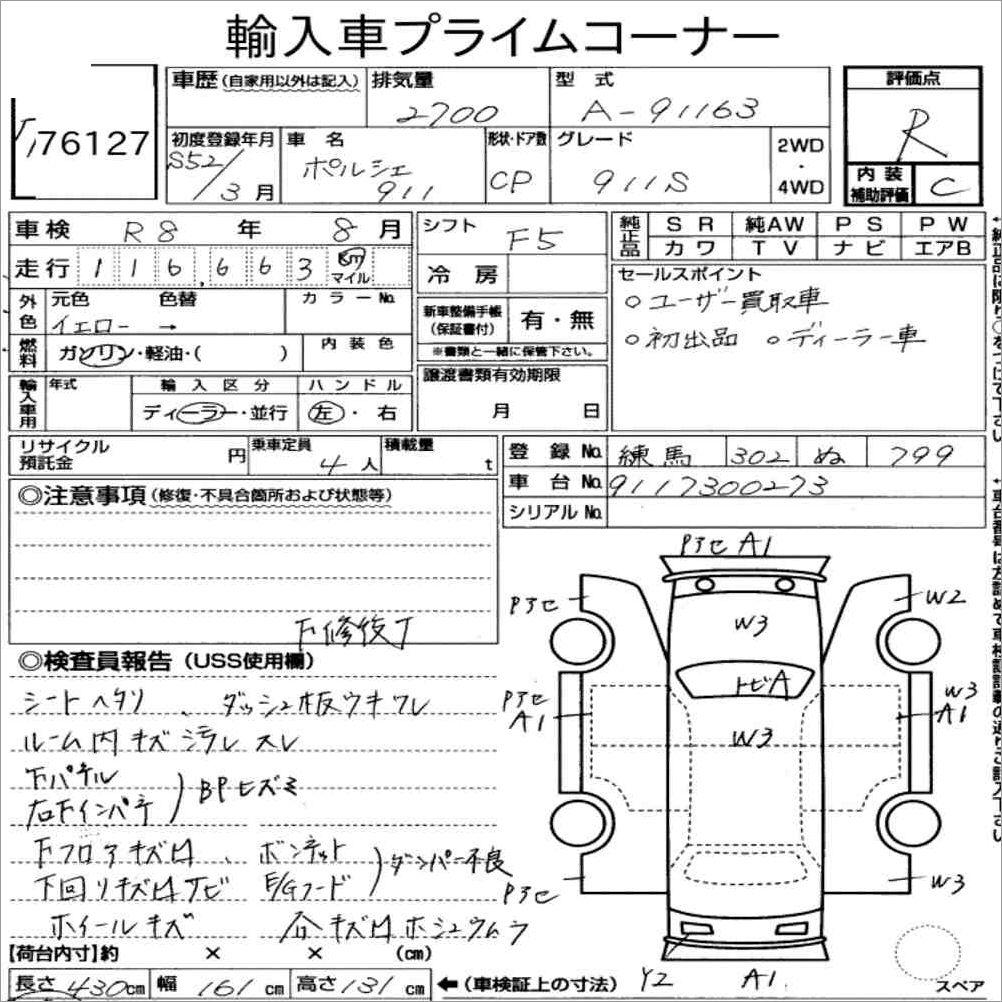 輸入車プライムコーナー
76127
車歴 (自家用以外は記入) 排気量 2700 型式 A-91163
評価点 R
初度登録年月 S52/3月 車名 ポルシェ 911 形状・ドア数 CP グレード 911S 2WD・4WD
内装補助評価 C
車検 R8年 8月 シフト F5
純正品 SR 純AW PS PW
カワ TV ナビ エアB
走行 116,663 km マイル 冷房
セールスポイント
○ユーザー買取車
○初出品 ○ディーラー車
外色 元色 イエロー → 色替 カラーNo.
新車整備手帳(保証書付) 有・無
※書類と一緒に保管下さい。
燃料 ガソリン・軽油・( ) 内装色
譲渡書類有効期限 月 日
輸入車用 年式 輸入区分 ディーラー・並行 ハンドル 左・右
リサイクル預託金 円 乗車定員 4人 積載量 t
登録No. 練馬 302 ぬ 799
車台No. 9117300273
シリアルNo.
◎注意事項 (修復・不具合箇所および状態等)
下修後了
◎検査員報告 (USS使用欄)
シートヘタリ、ダッシュ板ウキワレ
ルーム内キズ汚レスレ
下パネル
右下インパネ
BPヒズミ
下フロアキズ凹、ボンネット
下回りキズ凹サビ E/Gフード
ダンパー不良
ホイールキズ
キズ凹ホシュウムラ
Pアセ A1
Pアセ
W2
W3
トビA
W3
Pアセ
A1
W3
A1
Pアセ
W3
Y2
A1
スペア
【荷台内寸】約 × × (cm)
長さ 430cm 幅 161cm 高さ 131cm ←(車検証上の寸法)